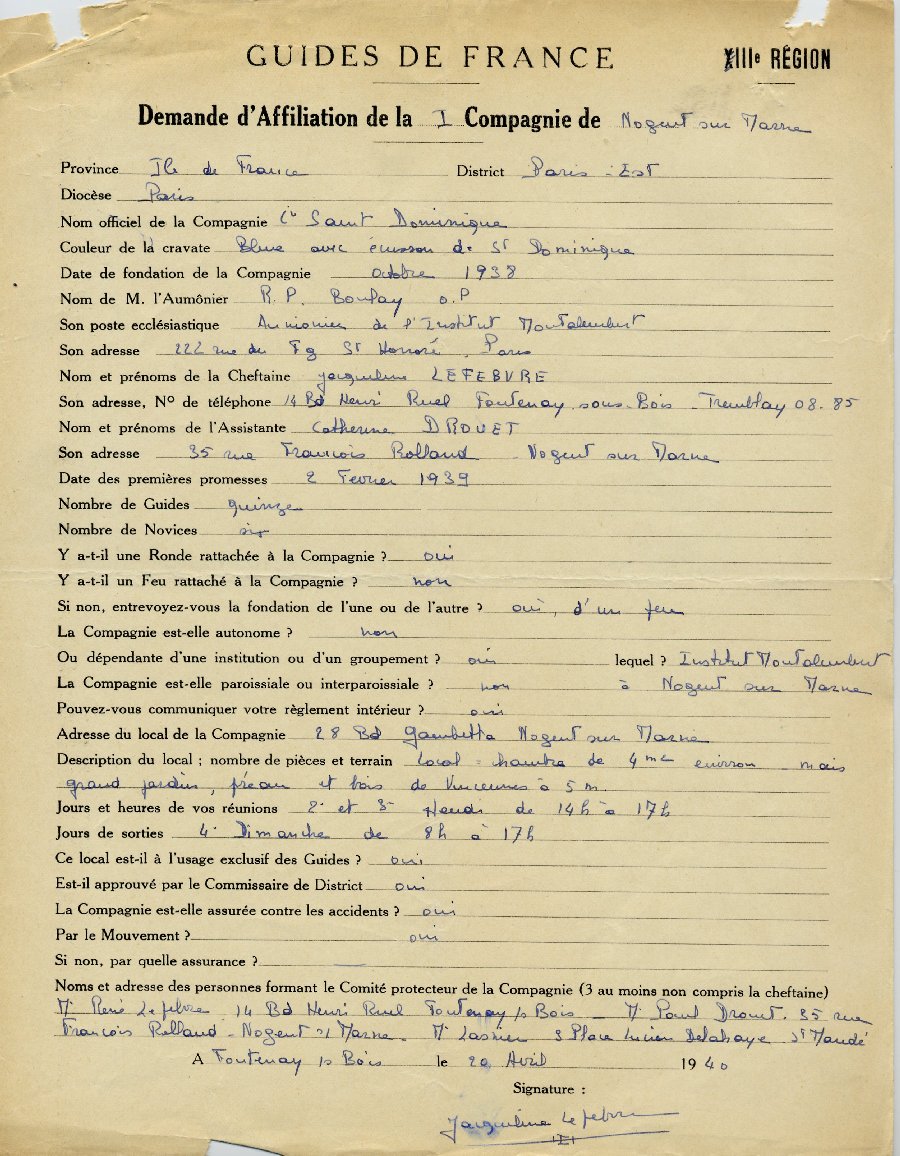 GUIDES DE FRANCE
XIIIe RÉGION
Demande d'Affiliation de la I Compagnie de Nogent sur Marne
Province Ile de France District Paris-Est
Diocèse Paris
Nom officiel de la Compagnie Cie Saint Dominique
Couleur de la cravate Bleue avec écusson de St Dominique
Date de fondation de la Compagnie octobre 1938
Nom de M. l'Aumônier R.P. Boulay o.P
Son poste ecclésiastique Aumonier de l'Institut Montalembert
Son adresse 222 rue du Fg St Honoré, Paris
Nom et prénoms de la Cheftaine Jacqueline LEFEBVRE
Son adresse, No de téléphone 14 Bd Henri Ruel Fontenay sous-Bois - Tremblay 08.85
Nom et prénoms de l'Assistante Catherine DROUET
Son adresse 35 rue François Rolland Nogent sur Marne
Date des premières promesses 2 Fevrier 1939
Nombre de Guides quinze
Nombre de Novices six
Y a-t-il une Ronde rattachée à la Compagnie ? oui
Y a-t-il un Feu rattaché à la Compagnie ? non
Si non, entrevoyez-vous la fondation de l'une ou de l'autre ? oui, d'un feu
La Compagnie est-elle autonome ? non
Ou dépendante d'une institution ou d'un groupement ? oui lequel ? Institut Montalembert
La Compagnie est-elle paroissiale ou interparoissiale ? non à Nogent sur Marne
Pouvez-vous communiquer votre règlement intérieur ? oui
Adresse du local de la Compagnie 28 Bd Gambetta Nogent sur Marne
Description du local ; nombre de pièces et terrain Local = chambre de 4 environ mais
grand jardin, préau et bois de Vincennes à 5 m
Jours et heures de vos réunions 2e et 3e Jeudi de 14h à 17h
Jours de sorties 4e Dimanche de 8h à 17h
Ce local est-il à l'usage exclusif des Guides ? oui
Est-il approuvé par le Commissaire de District oui
La Compagnie est-elle assurée contre les accidents ? oui
Par le Mouvement ? oui
Si non, par quelle assurance ?
Noms et adresse des personnes formant le Comité protecteur de la Compagnie (3 au moins non compris la cheftaine)
Mr René Lefebvre 14 Bd Henri Ruel Fontenay s/s Bois - Mr Paul Drouet. 35 rue
François Rolland - Nogent s/ Marne - Mr Lasnier 3 Place Lucien Delahaye St Mandé
A Fontenay s/s Bois le 20 Avril 1940
Signature :
Jacqueline Lefebvre